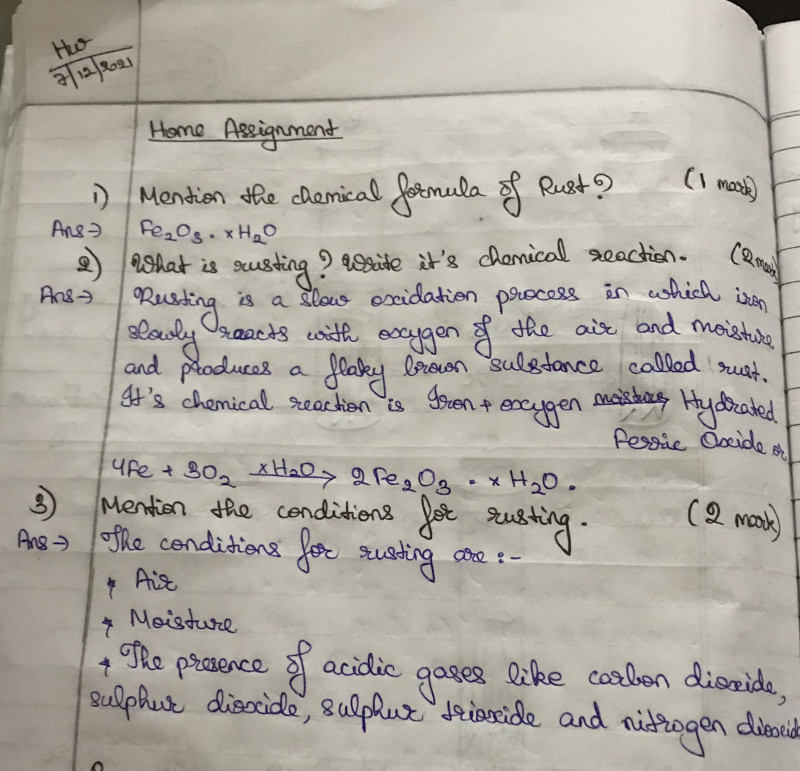 HW
7/12/2021
Home Assignment
1) Mention the chemical formula of Rust? (1 mark)
Ans → Fe₂O₃ . xH₂O
2) What is rusting? Write it's chemical reaction. (2 mark)
Ans → Rusting is a slow oxidation process in which iron
slowly reacts with oxygen of the air and moisture
and produces a flaky brown substance called rust.
It's chemical reaction is Iron + oxygen moisture Hydrated
Ferric Oxide or
4Fe + 3O₂ xH₂O → 2Fe₂O₃ . xH₂O.
3) Mention the conditions for rusting. (2 mark)
Ans → The conditions for rusting are :-
* Air
* Moisture
* The presence of acidic gases like carbon dioxide,
sulphur dioxide, sulphur trioxide and nitrogen dioxide